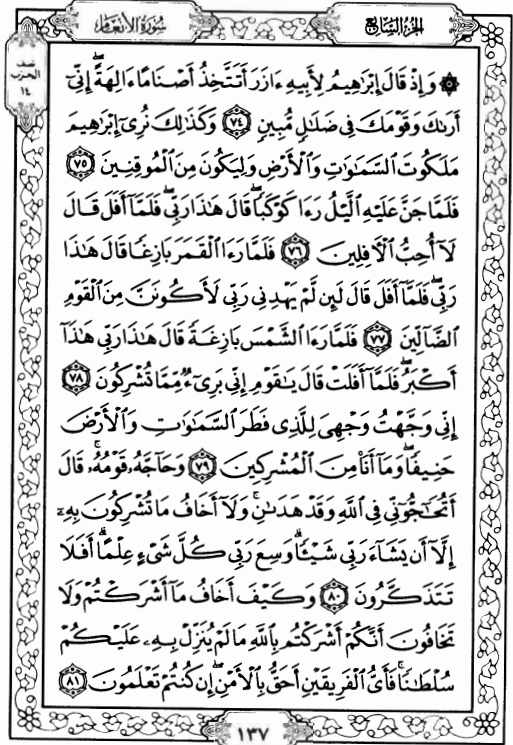 سورة الأنعام
الجزء السابع
نصف
الحزب
١٤
۞ وَإِذْ قَالَ إِبْرَٰهِيمُ لِأَبِيهِ ءَازَرَ أَتَتَّخِذُ أَصْنَامًا ءَالِهَةً ۖ إِنِّىٓ
أَرَىٰكَ وَقَوْمَكَ فِى ضَلَٰلٍ مُّبِينٍ ٧٤ وَكَذَٰلِكَ نُرِىٓ إِبْرَٰهِيمَ
مَلَكُوتَ ٱلسَّمَٰوَٰتِ وَٱلْأَرْضِ وَلِيَكُونَ مِنَ ٱلْمُوقِنِينَ ٧٥
فَلَمَّا جَنَّ عَلَيْهِ ٱلَّيْلُ رَءَا كَوْكَبًا ۖ قَالَ هَٰذَا رَبِّى ۖ فَلَمَّآ أَفَلَ قَالَ
لَآ أُحِبُّ ٱلْءَافِلِينَ ٧٦ فَلَمَّا رَءَا ٱلْقَمَرَ بَازِغًا قَالَ هَٰذَا
رَبِّى ۖ فَلَمَّآ أَفَلَ قَالَ لَئِن لَّمْ يَهْدِنِى رَبِّى لَأَكُونَنَّ مِنَ ٱلْقَوْمِ
ٱلضَّآلِّينَ ٧٧ فَلَمَّا رَءَا ٱلشَّمْسَ بَازِغَةً قَالَ هَٰذَا رَبِّى هَٰذَآ
أَكْبَرُ ۖ فَلَمَّآ أَفَلَتْ قَالَ يَٰقَوْمِ إِنِّى بَرِىٓءٌ مِّمَّا تُشْرِكُونَ ٧٨
إِنِّى وَجَّهْتُ وَجْهِىَ لِلَّذِى فَطَرَ ٱلسَّمَٰوَٰتِ وَٱلْأَرْضَ
حَنِيفًا ۖ وَمَآ أَنَا۠ مِنَ ٱلْمُشْرِكِينَ ٧٩ وَحَآجَّهُۥ قَوْمُهُۥ ۚ قَالَ
أَتُحَٰٓجُّوٓنِّى فِى ٱللَّهِ وَقَدْ هَدَىٰنِ ۚ وَلَآ أَخَافُ مَا تُشْرِكُونَ بِهِۦٓ
إِلَّآ أَن يَشَآءَ رَبِّى شَيْـًٔا ۗ وَسِعَ رَبِّى كُلَّ شَىْءٍ عِلْمًا ۗ أَفَلَا
تَتَذَكَّرُونَ ٨٠ وَكَيْفَ أَخَافُ مَآ أَشْرَكْتُمْ وَلَا
تَخَافُونَ أَنَّكُمْ أَشْرَكْتُم بِٱللَّهِ مَا لَمْ يُنَزِّلْ بِهِۦ عَلَيْكُمْ
سُلْطَٰنًا ۚ فَأَىُّ ٱلْفَرِيقَيْنِ أَحَقُّ بِٱلْأَمْنِ ۖ إِن كُنتُمْ تَعْلَمُونَ ٨١
١٣٧